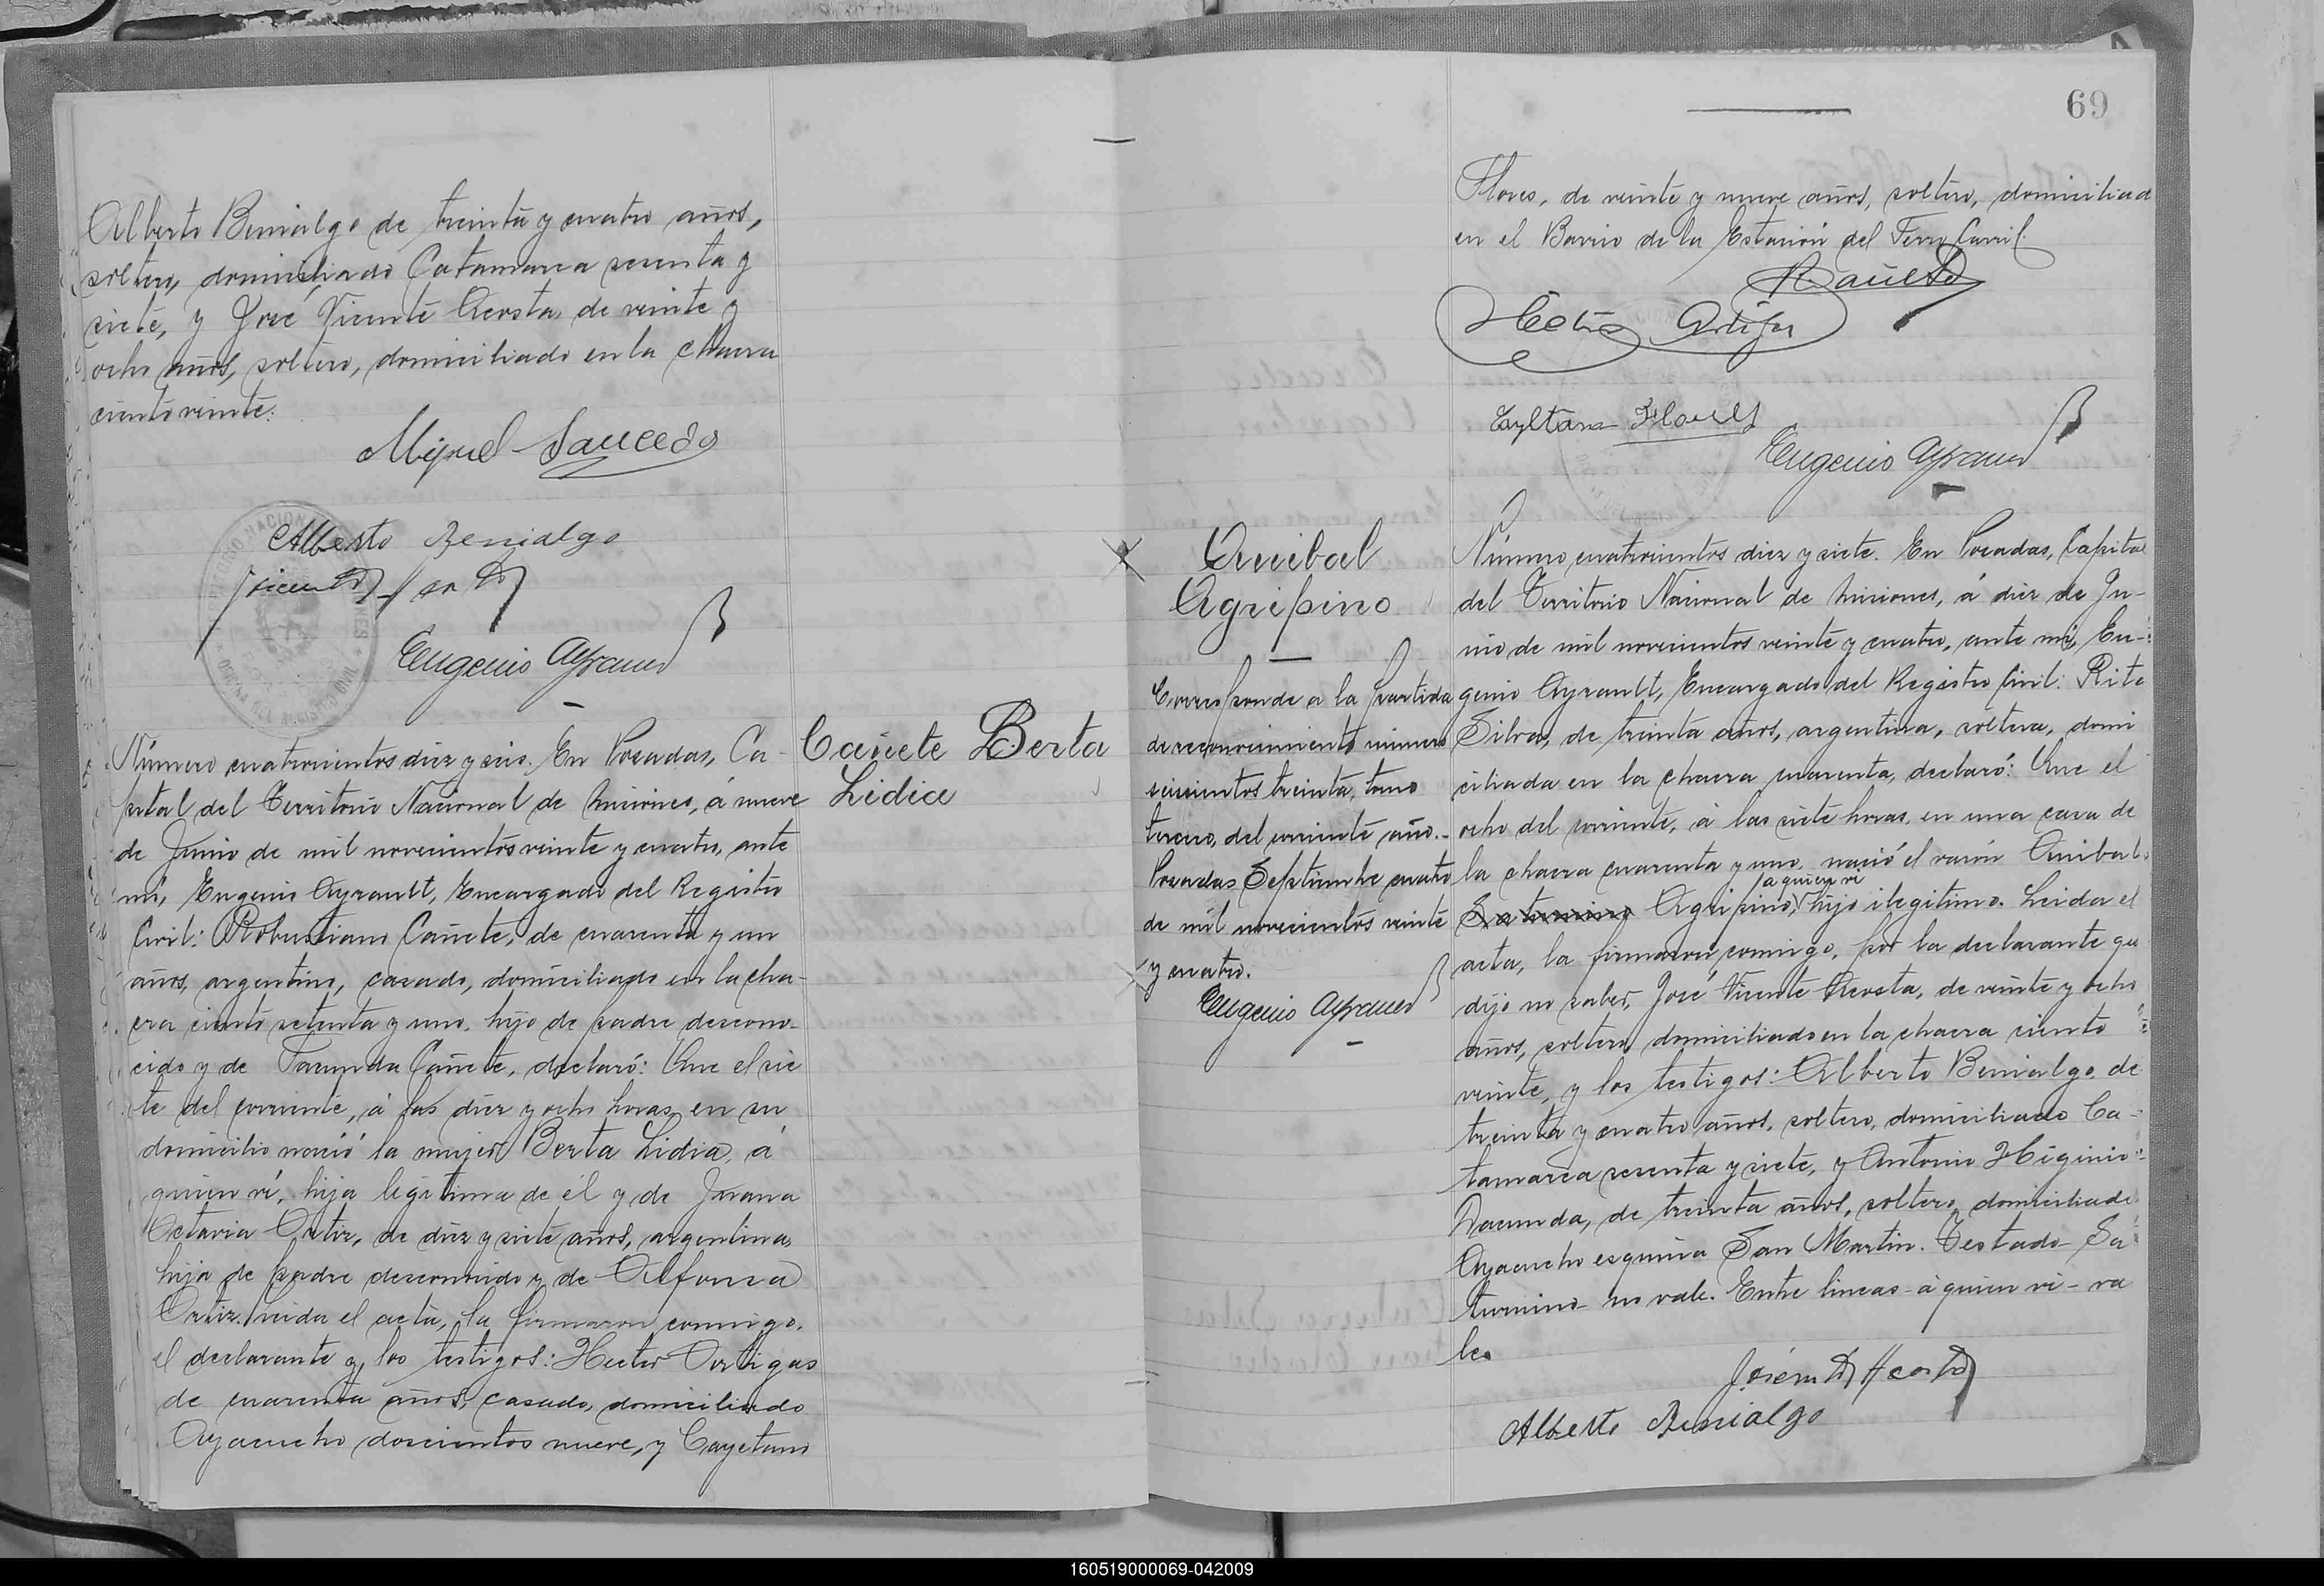 Alberto Benialgo de treinta y cuatro años,
soltero, domiciliado Catamarca sesenta y
siete, y José Vicente Acosta, de veinte y
ocho años, soltero, domiciliado en la chacra
ciento veinte.
Miguel Saucedo
Alberto Benialgo
Eugenio Ayrault
Número cuatrocientos diez y seis. En Posadas, Ca-
pital del Territorio Nacional de Misiones, á nueve
de Junio de mil novecientos veinte y cuatro, ante
mí, Eugenio Ayrault, Encargado del Registro
Civil: Robustiano Cañete, de cuarenta y un
años, argentino, casado, domiciliado en la cha-
cra ciento setenta y uno, hijo de padre descono-
cido y de Facunda Cañete, declaró: Que el sie
te del corriente, á las diez y ocho horas, en su
domicilio nació la mujer Berta Lidia, á
quien ví, hija legítima de él y de Juana
Octavia Ortiz, de diez y siete años, argentina,
hija de padre desconocido y de Alfonsa
Ortiz. Leida el acta, la firmaron conmigo,
el declarante y los testigos: Hector Ortigas
de cuarenta años, casado, domiciliado
Ayacucho doscientos nueve, y Cayetano
Cañete Berta
Lidia
69
Flores, de veinte y nueve años, soltero, domiciliad
en el Barrio de la Estación del Ferro Carril.
R Cañete
Hector Ortigas
Cayetano Flores
Eugenio Ayrault
Anibal
Agripino
Corresponde a la partida
de reconocimiento número
seiscientos treinta, tomo
tercero, del corriente año.-
Posadas Septiembre cuatro
de mil novecientos veinte
y cuatro.
Eugenio Ayrault
Número cuatrocientos diez y siete. En Posadas, Capital
del Territorio Nacional de Misiones, á diez de Ju-
nio de mil novecientos veinte y cuatro, ante mí, Eu-
genio Ayrault, Encargado del Registro Civil: Rita
Silva, de treinta años, argentina, soltera, domi
ciliada en la chacra cuarenta, declaró: Que el
ocho del corriente, á las siete horas, en una casa de
la chacra cuarenta y uno, nació el varón Anibal
a quien ví
Saturnino Agripino, hijo ilegitimo. Leida el
acta, la firmaron conmigo, por la declarante que
dijo no saber, José Vicente Acosta, de veinte y ocho
años, soltero, domiciliado en la chacra ciento
veinte, y los testigos: Alberto Benialgo, de
treinta y cuatro años, soltero, domiciliado Ca-
tamarca sesenta y siete, y Antonio Higinio
Dacunda, de treinta años, soltero, domiciliado
Ayacucho esquina San Martin. Testado- Sa
turnino- no vale. Entre lineas- á quien vi- va
le.
José V Acosta
Alberto Benialgo
160519000069-042009